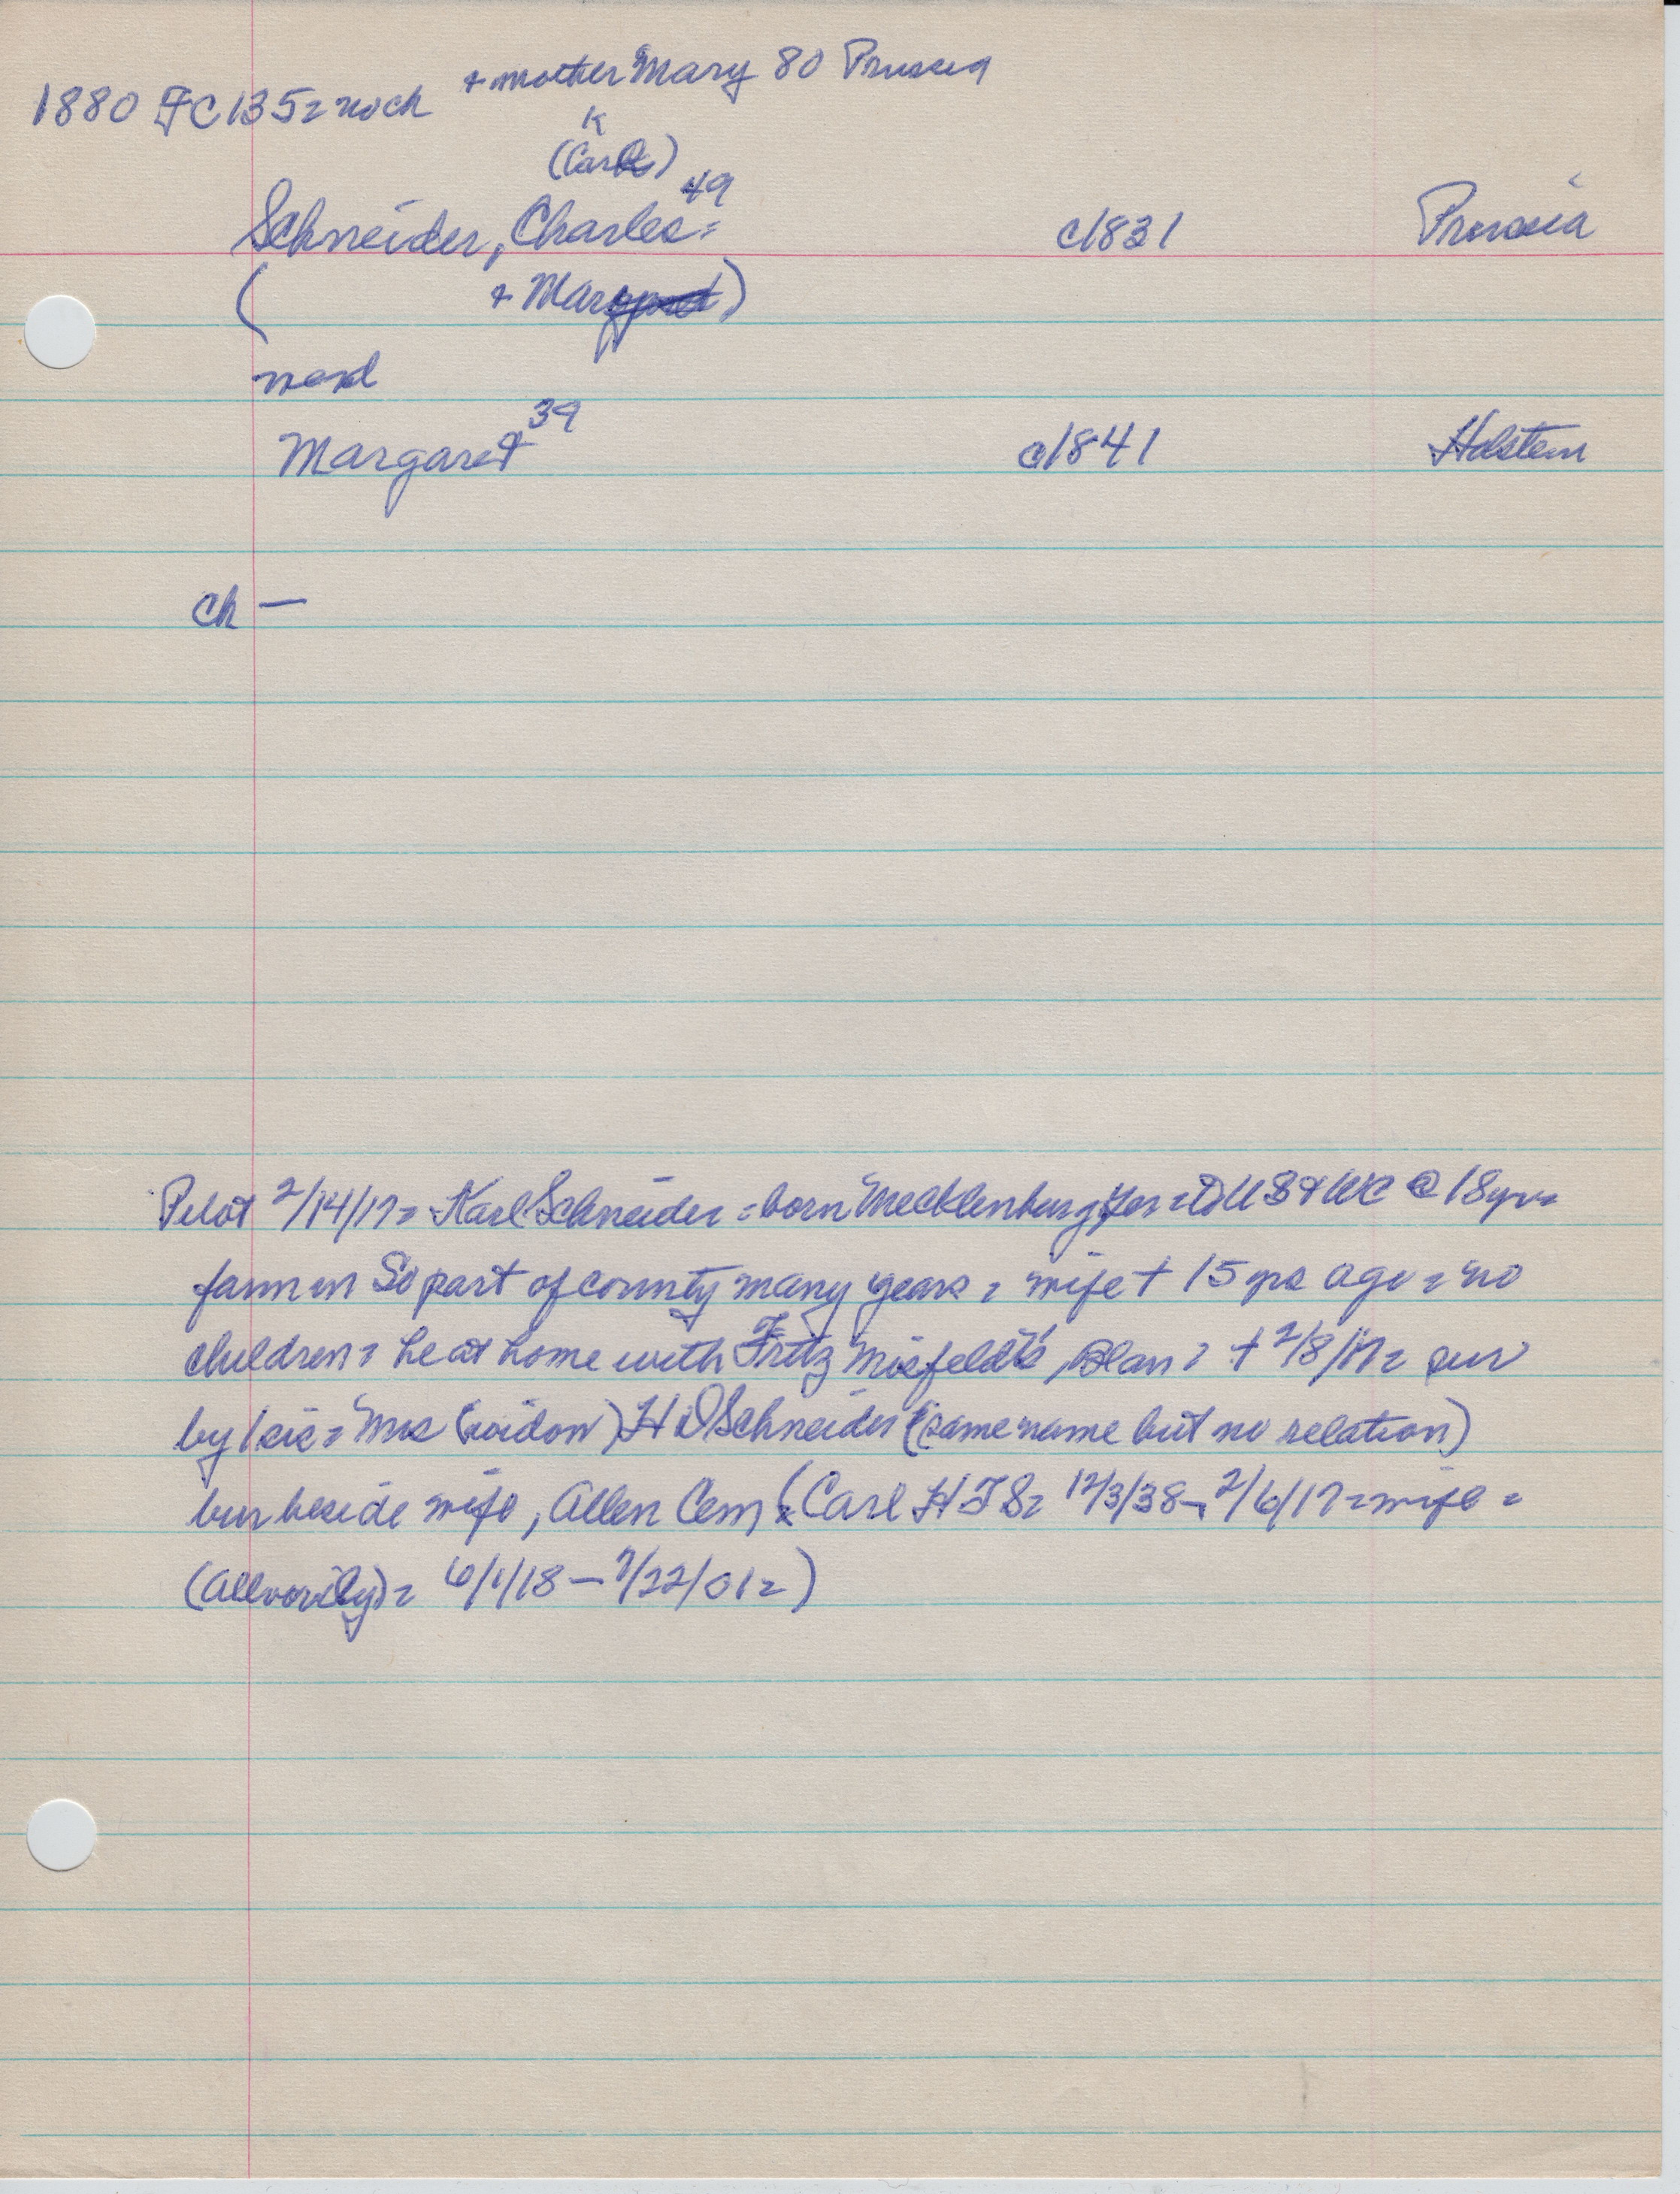 + mother Mary 80 Prussia
1880 FC 135 = no ch
K
(Carl)
49
Schneider, Charles = c1831 Prussia
( + Mary )
mard
39
Margaret c1841 Holstein
ch —
Pilot 2/14/17 = Karl Schneider = born Mecklenburg Ger = to US & WC @ 18 yrs =
farm in So part of county many years = wife + 15 yrs ago = no
children = he at home with Fritz Misfeldt's, = + 2/8/17 = sur
by 1 sis = Mrs (widow) H D Schneider (same name but no relation)
bur beside wife, Allen Cem (Carl H F S = 12/3/38 – 2/6/17 = wife =
6/1/18 – 7/22/01 = )